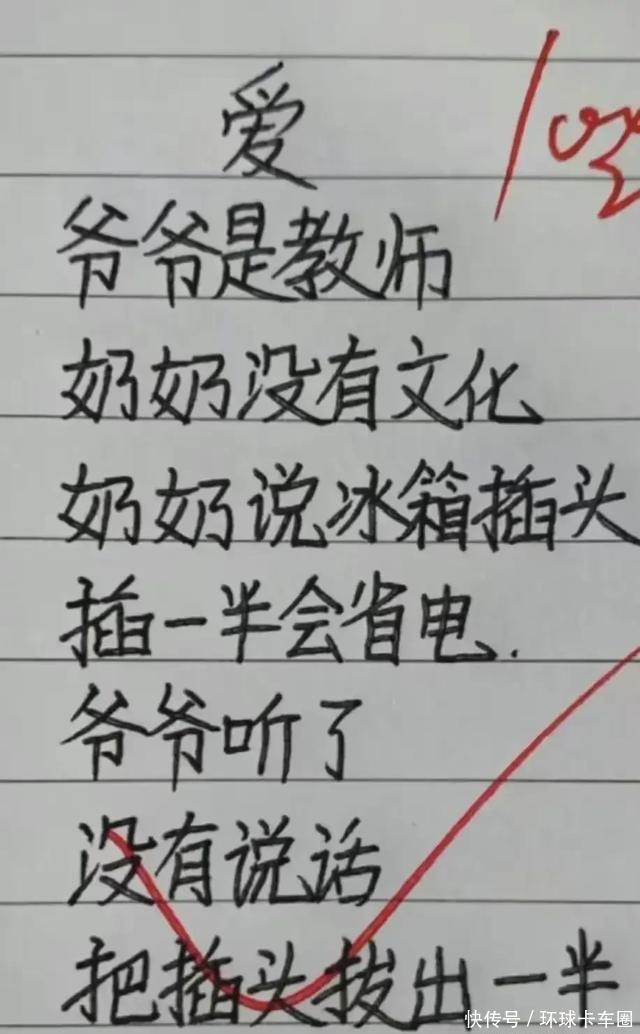 爱
爷爷是教师
奶奶没有文化
奶奶说冰箱插头
插一半会省电.
爷爷听了
没有说话
把插头拔出一半
快传号/环球卡车圈